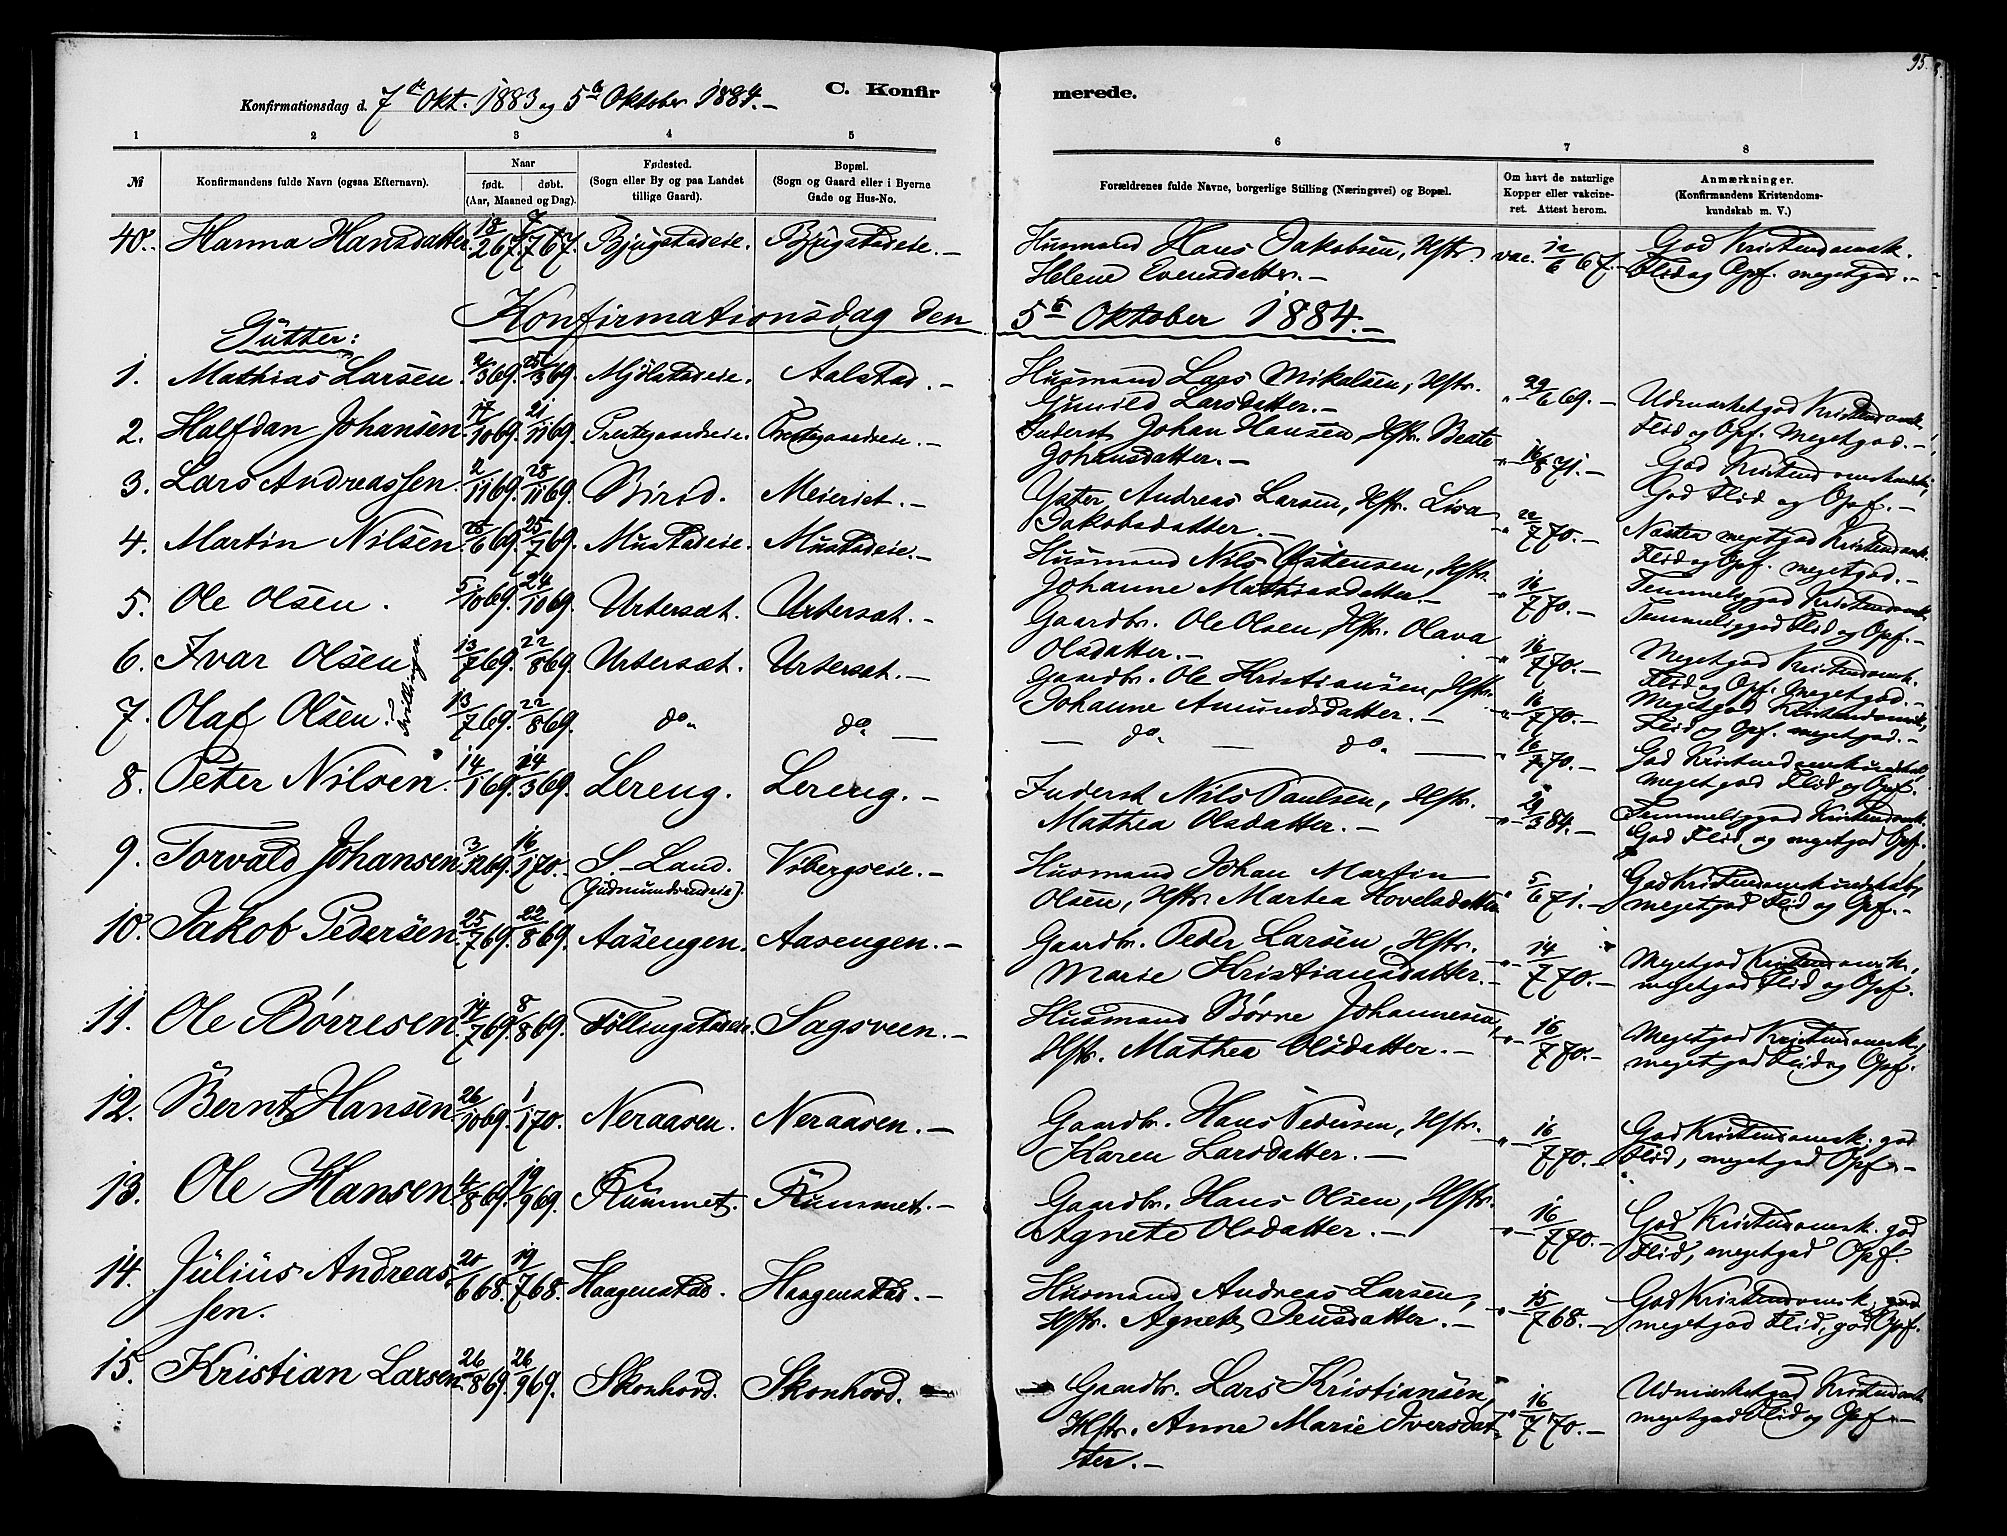 95.
Konfirmationsdag d. 7de Okt. 1883 og 5te Oktober 1884.-
C. Konfirmerede.
1 2 3 4 5 6 7 8
№
Konfirmandens fulde Navn (ogsaa Efternavn).
Naar
født. døbt.
(Aar, Maaned og Dag).
Fødested.
(Sogn eller By og paa Landet
tillige Gaard).
Bopæl.
(Sogn og Gaard eller i Byerne
Gade og Hus-No.
Forældrenes fulde Navne, borgerlige Stilling (Næringsvei) og Bopæl.
Om havt de naturlige
Kopper eller vakcine-
ret. Attest herom.
Anmærkninger.
(Konfirmandens Kristendoms-
kundskab m. V.)
40. Hanna Hansdatter. 67. 7/7 67. Bjugstadeie. Bjugstadeie.- Husmand Hans Jakobsen, Hstr. vac. 12/6 67.- God Kristendomsk.
Helene Evensdatter.- Flid og Opf. megetgod.-
Konfirmationsdag den 5te Oktober 1884.-
Gutter:
1. Mathias Larsen. 2/3 69. 25/3 69. Mjølstadeie. Aalstad.- Husmand Lars Mikalsen, Hstr. " 29/6 69.- Udmærketgod Kristendomsk.
Gunild Larsdatter.- Flid og Opf. megetgod.-
2. Halfdan Johansen 17/10 69. 21/11 69. Prestegaardseie. Prestegaardseie.- Inderst Johan Hansen, Hstr. Beate -"- 16/8 71.- God Kristendomskundsk.,
Johansdatter.- God Flid og Opf.-
3. Lars Andreassen. 2/11 69. 28/11 69. Birid. Meieriet.- Yster Andreas Larsen, Hstr. Lisa -"- 22/7 70.- Næsten megetgod Kristendomsk.
Jakobsdatter.- Flid og Opf. megetgod.-
4. Martin Nilsen 25/6 69. 25/7 69. Mustadeie. Mustadeie.- Husmand Nils Østensen, Hstr. -"- 16/7 70.- Temmeliggod Kristendomsk.
Johanne Mathiasdatter.- Temmeliggod Flid og Opf.-
5. Ole Olsen. 5/10 69. 24/10 69. Urtersæt. Urtersæt.- Gaardbr. Ole Olsen, Hstr. Olava -"- 16/7 70.- Megetgod Kristendomsk.
Olsdatter.- Flid og Opf. megetgod.-
6. Ivar Olsen 13/7 69. 22/8 69. Urtersæt. Urtersæt.- Gaardbr. Ole Kristiansen, Hstr. -"- 16/7 70.- Megetgod Kristendomsk.,
Johanne Amundsdatter.- Flid og Opf. megetgod.-
Tvillinger
7. Olaf Olsen. 13/7 69. 22/8 69. do. do. - - do. - do. - -"- 16/7 70.- God Kristendomskundskab,
megetgod Flid og Opf.
8. Peter Nilsen. 14/1 69. 14/3 69. Lereng. Lereng.- Inderst Nils Paulsen, Hstr. -"- 29/3 84.- Temmeliggod Kristendomsk.
Mathea Olsdatter.- God Flid og megetgod Opf.
9. Torvald Johansen. 3/12 69. 16/1 70.- S.-Land. Vibergseie.- Husmand Johan Martin 5/6 71.- God Kristendomskundskab,
(Gudmundsrudeie). Olsen, Hstr. Martea Hovelsdatter megetgod Flid og Opf.-
10. Jakob Pedersen. 25/7 69. 22/8 69. Aasengen. Aasengen.- Gaardbr. Peder Larsen, Hstr. -"- 14/7 70.- Megetgod Kristendomsk.,
Marie Kristiansdatter.- megetgod Flid og Opf.
11. Ole Børresen. 14/7 69. 8/8 69. Føllingstadeie. Sagsveen.- Husmand Børre Johannesen, -"- 16/7 70.- Megetgod Kristendomsk.,
Hstr. Mathea Olsdatter.- megetgod Flid og Opf.
12. Bernt Hansen. 26/10 69. 1/1 70. Neraasen. Neraasen.- Gaardbr. Hans Pedersen, Hstr. -"- 16/7 70.- God Kristendomsk. god
Karen Larsdatter.- Flid, megetgod Opf.-
13. Ole Hansen 4/8 69. 19/9 69. Rummet. Rummet.- Gaardbr. Hans Olsen, Hstr. -"- 16/7 70.- God Kristendomsk. god
Agnete Olsdatter.- Flid, megetgod Opf.
14. Julius Andreas 68. 19/7 68. Haagenstad. Haagenstad.- Husmand Andreas Larsen, -"- 15/7 68.- God Kristendomsk.,
sen. Hstr. Agnete Jensdatter.- megetgod Flid, god Opf.
15. Kristian Larsen 26/8 69. 26/9 69. Skonhovd. Skonhovd. Gaardbr. Lars Kristiansen, " 16/7 70.- Udmærketgod Kristendomsk.
Hstr. Anne Marie Iversdat megetgod Flid og Opf.-
ter.-